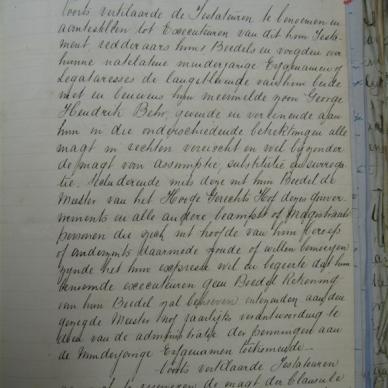 Voorts verklaarde de Testateuren te benoemen en
aantestellen tot Executeuren van dit hun Testa-
ment, redderaars huns Boedels en voogden over
hunne natelatene minderjarige Erfgenamen of
Legataresses de langstlevende van hun beide
met en benevens hun meermelde zoon George
Hendrik Behr, gevende en verleenende aan
hun in die onderscheidene betrekkingen alle
magt in rechten vereischt en wel byzonder
de magt van assumptie, substitutie en surroga-
tie. Secludeerende mits dezen uit hun Boedel de
Meester van het Hooge Gerechts Hof dezes Gouver-
nements en alle andere beampte of Magistraats
personen die zich uit hoofde van hun beroep
of anderzints daarmede zoude of willen bemoeyen
zynde het hun expresse wil en begeerte dat hun
benoemde executeuren geen Boedel Rekening
van hun Boedel zal behoeven intezenden aan den
gezegde Meester nog jaarlijks verantwoording te
doen van de administratie der penningen aan
de Minderjarige Erfgenamen toekomende.
Voorts verklaarde Testateuren
de magt der Clausule